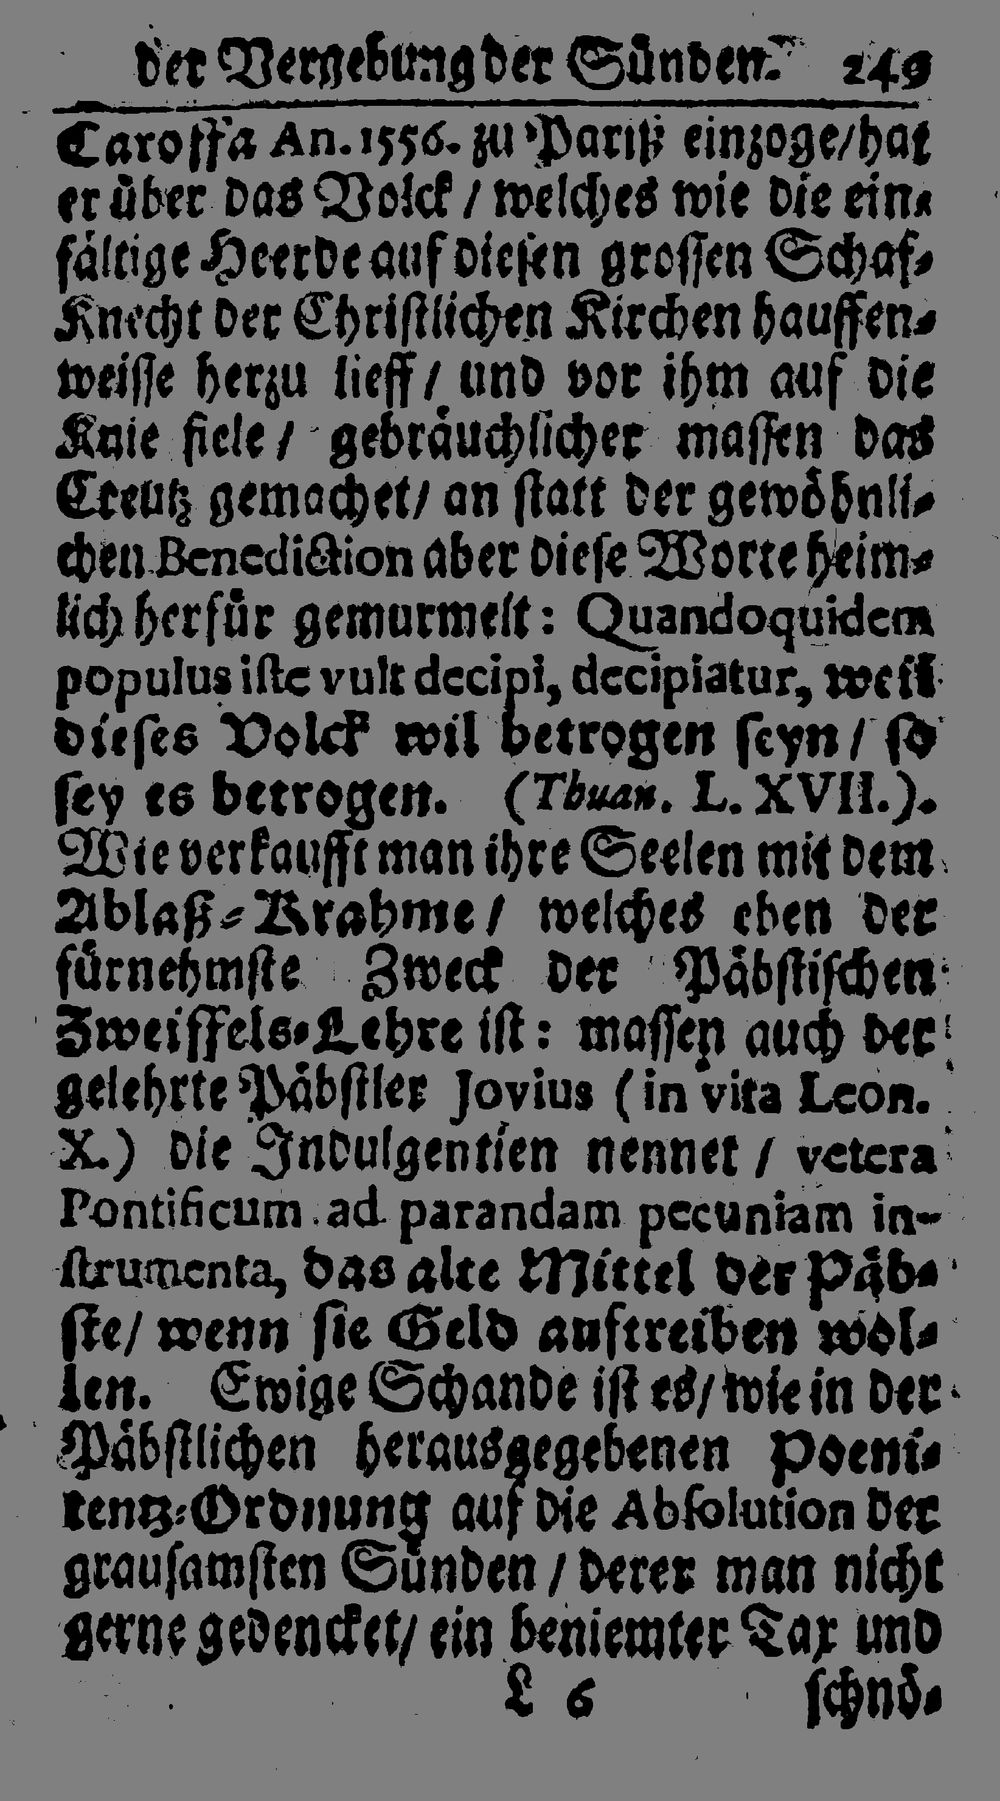 der Vergebung der Sünden. 249
Caroſſa An. 1556. zu Pariß einzoge/hat
er über das Volck / welches wie die ein-
fältige Heerde auf dieſen groſſen Schaf-
Knecht der Chriſtlichen Kirchen hauffen-
weiſſe herzu lieff / und vor ihm auf die
Knie fiele / gebräuchlicher maſſen das
Creutz gemachet/ an ſtatt der gewöhnli-
chen Benediction aber dieſe Worte heim-
lich herfür gemurmelt: Quandoquidem
populus iſte vult decipi, decipiatur, weil
dieſes Volck wil betrogen ſeyn / ſo
ſey es betrogen. (Thuan. L. XVII.).
Wie verkaufft man ihre Seelen mit dem
Ablaß-Krahme / welches eben der
fürnehmſte Zweck der Päbſtiſchen
Zweiffels-Lehre iſt: maſſen auch der
gelehrte Päbſtler Jovius (in vita Leon.
X.) die Indulgentien nennet / vetera
Pontificum ad parandam pecuniam in-
ſtrumenta, das alte Mittel der Päb-
ſte/ wenn ſie Geld auftreiben wol-
len. Ewige Schande iſt es/ wie in der
Päbſtlichen herausgegebenen Poeni-
tentz-Ordnung auf die Abſolution der
grauſamſten Sünden / derer man nicht
gerne gedencket/ ein beniemter Tax und
L 6 ſchnö-